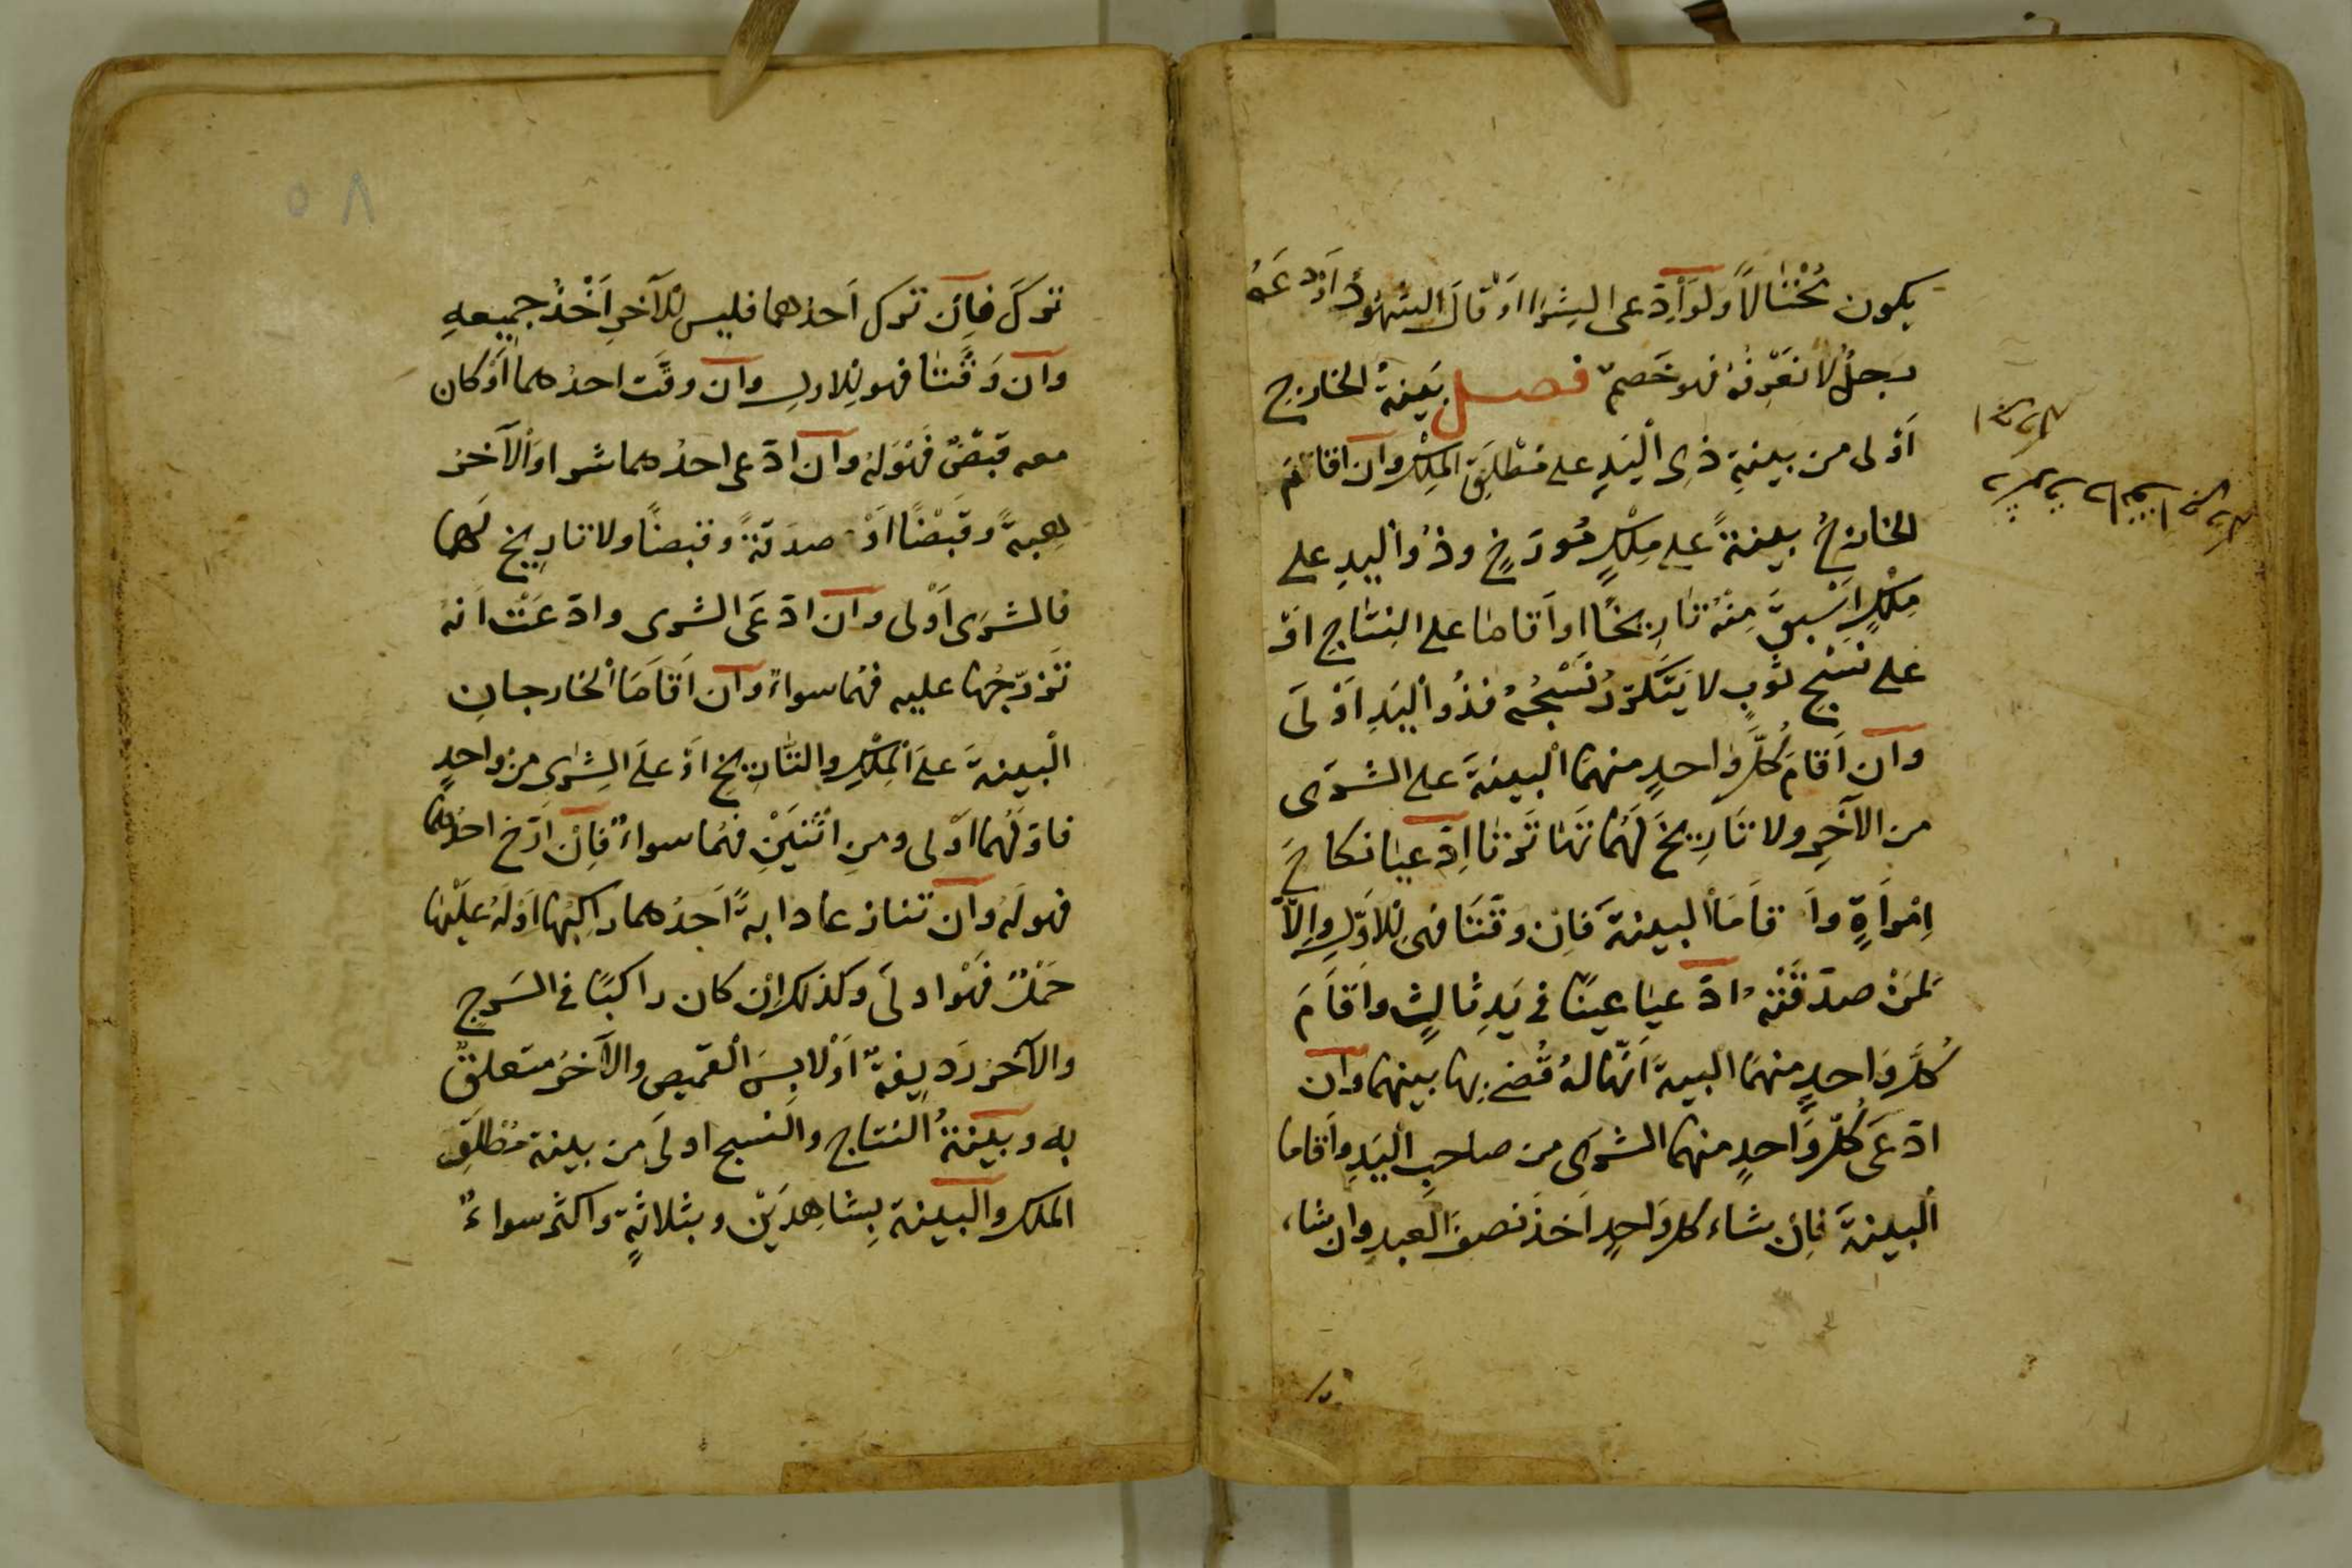 يكون مُحْتالاً ولو ادّعى الشرا او قال الشهود اَوْدَعَهُ
رجلٌ لا نعرفه فهو خَصمٌ فصل بينةُ الخارج
اَوْلى من بينةِ ذى اليَدِ على مُطْلَقِ المِلْكِ وان اقام
الخارجُ بينةً على مِلْكٍ مُورَخٍ وذُو اليدِ على
مِلْكٍ اسْبقَ مِنْهُ تاريخًا او اَقاما على النِتاجِ اَوْ
على نَسْجِ ثوبٍ لا يَتَكَرّرُ نَسْجُهُ فذُو اليَدِ اَوْلَى
وان اَقامَ كُلُّ واحدٍ منهما البينةَ على الشرَى
من الآخَرِ ولا تَارِيخَ لَهُما تَهَاتَرَتا اِدّعيا نكاحَ
اِمْرَاَةٍ واَقامَا البينةَ فَاِن وقّتَتَا فهى لِلاَوّلِ واِلّا
لمَنْ صدّقَتْهُ ادّعيا عينًا فى يَدِ ثالثٍ واَقَامَ
كُلُّ وَاحدٍ منهمَا البينةَ اَنّها لهُ قُضى بها بينهما وان
ادّعَى كُلُّ وَاحدٍ منهما الشرَى من صاحبِ اليَدِ واَقاما
البينةَ فاِن شاء كل وَاحدٍ اَخذَ نصفَ العبدِ وان شاء
٥٨
تركَ فاِن تَركَ اَحدُهما فليس للآخرِ اَخْذُ جميعهِ
وان وَقّتَتا فهو لِلاولِ وان وقّتَت احدُهما اَوْ كان
معه قَبْضٌ فَهْوَ لهُ وان ادّعى احدُهما شرا والآخر
هِبةً وقَبْضًا اَوْ صدَقةً وقبضًا ولا تاريخ لَهما
فالشرَى اَوْلى وان ادّعَى الشرى وادّعَتْ اَنهُ
تَزَوّجَها عليه فهُما سواءٌ وان اَقَامَا الخارجانِ
البينةَ علَى المِلْكِ والتّاريخِ اَوْ علَى الشِرَى من واحدٍ
فاَوّلهُما اَوْلى ومنِ اثْنَيْنِ فهُما سواءٌ فاِنْ اَرّخ احدُهما
فهو لَهُ وان تنازعا دابةً اَحدُهما راكبُها اَوْ لَهُ عليْها
حَمْلٌ فَهْوَ اولَى وكذلك اِنْ كان راكبًا فى السَرجِ
والآخرَ رَدِيفهُ اَوْ لابسَ القميصِ والآخرُ متعلقٌ
به وبيّنةُ النتاجِ والنَسج اولَى من بينة مُطْلَقِ
الملك والبينة بِشاهِدَيْن وبثلاثةٍ واكثر سواءٌ